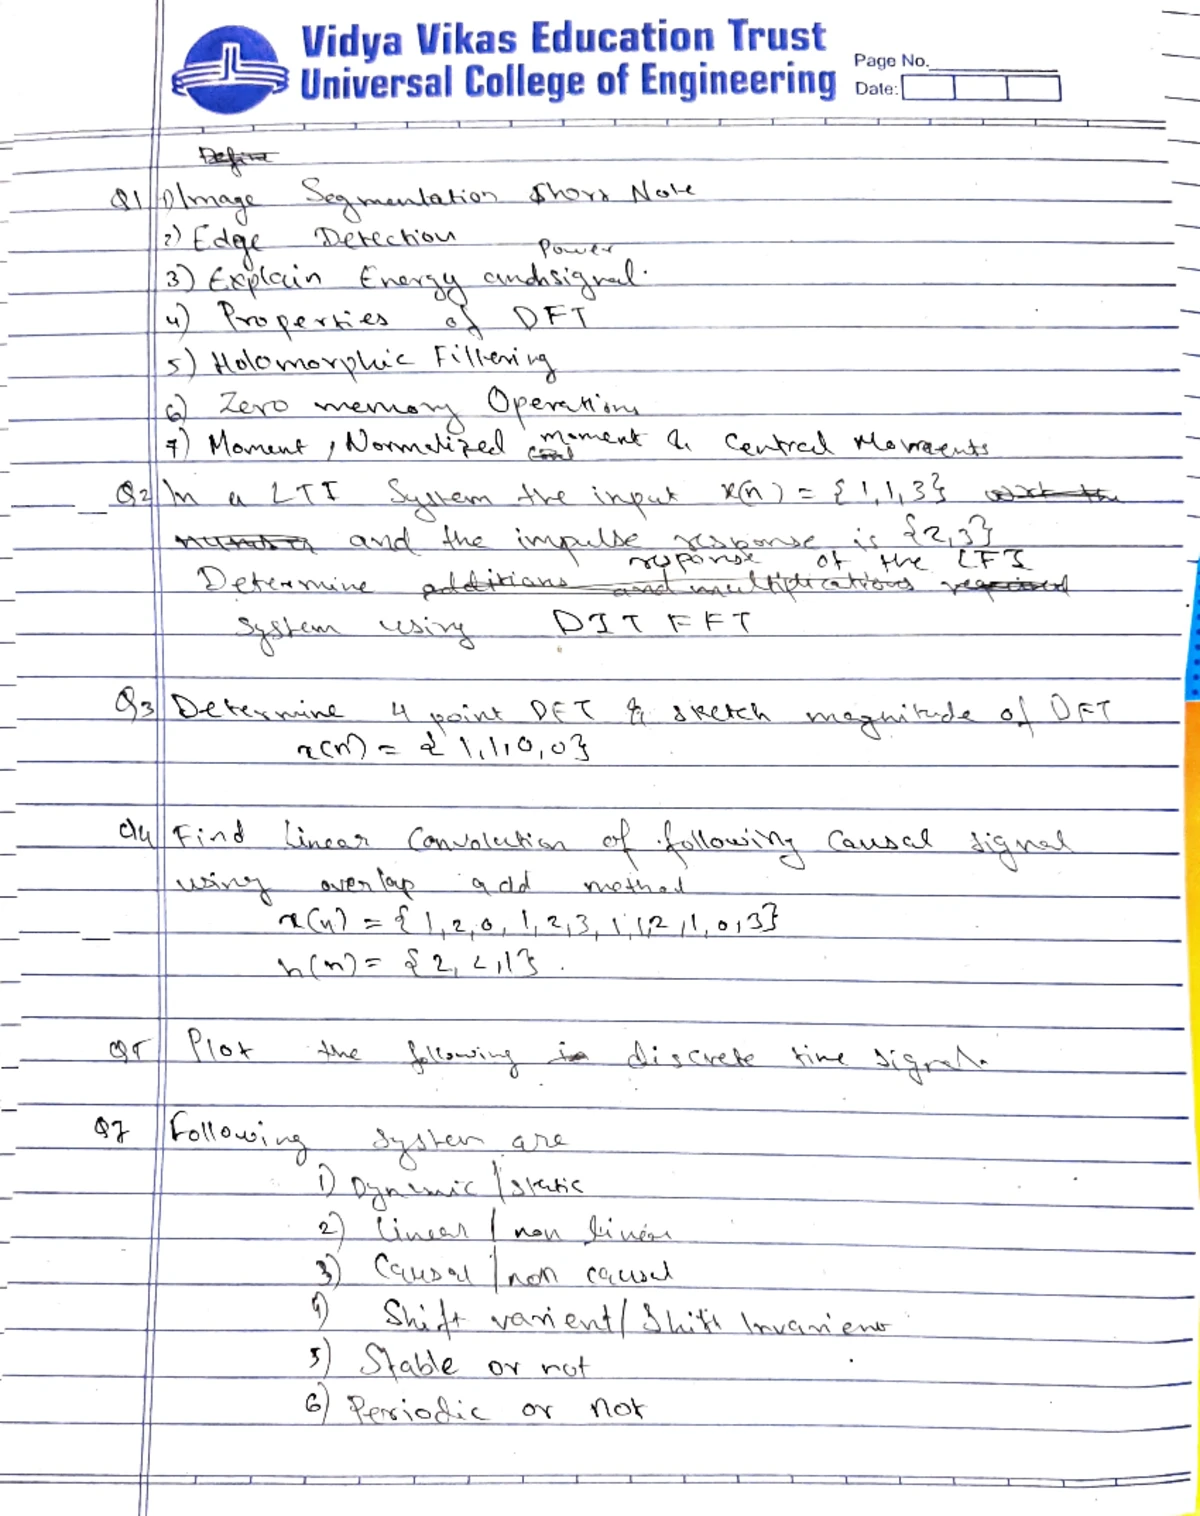 Vidya Vikas Education Trust
Universal College of Engineering
Page No.
Date:
Define
Q1 1) Image Segmentation Short Note
2) Edge Detection
3) Explain Energy and Power signal.
4) Properties of DFT
5) Holomorphic Filtering
6) Zero memory Operations
7) Moment, Normalized moment & Central Moments
Q2 In a LTI System the input x(n) = {1,1,3}
and the impulse response is {2,3}
Determine additions and multiplications required response of the LTI
System using DIT FFT
Q3 Determine 4 point DFT & sketch magnitude of DFT
x(n) = {1,1,0,0}
Q4 Find Linear Convolution of following Causal signal
using overlap add method
x(n) = {1,2,0,1,2,3,1,1,2,1,0,3}
h(n) = {2,2,1}.
Q5 Plot the following discrete time signal.
Q7 Following system are
1) Dynamic / static
2) Linear / non linear
3) Causal / non causal
4) Shift varient / Shift Invarient
5) Stable or not
6) Periodic or not